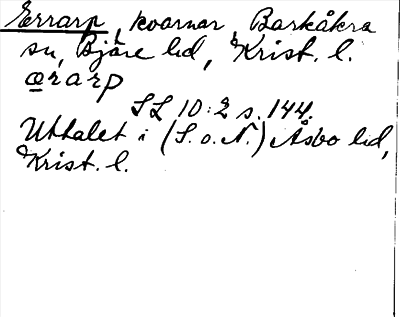 Errarp, kvarnar, Barkåkra
sn, Bjäre hd, Krist. l.
œrarp
SL 10:2 s. 144.
Uttalet i (S. o. N.) Åsbo hd,
Krist. l.